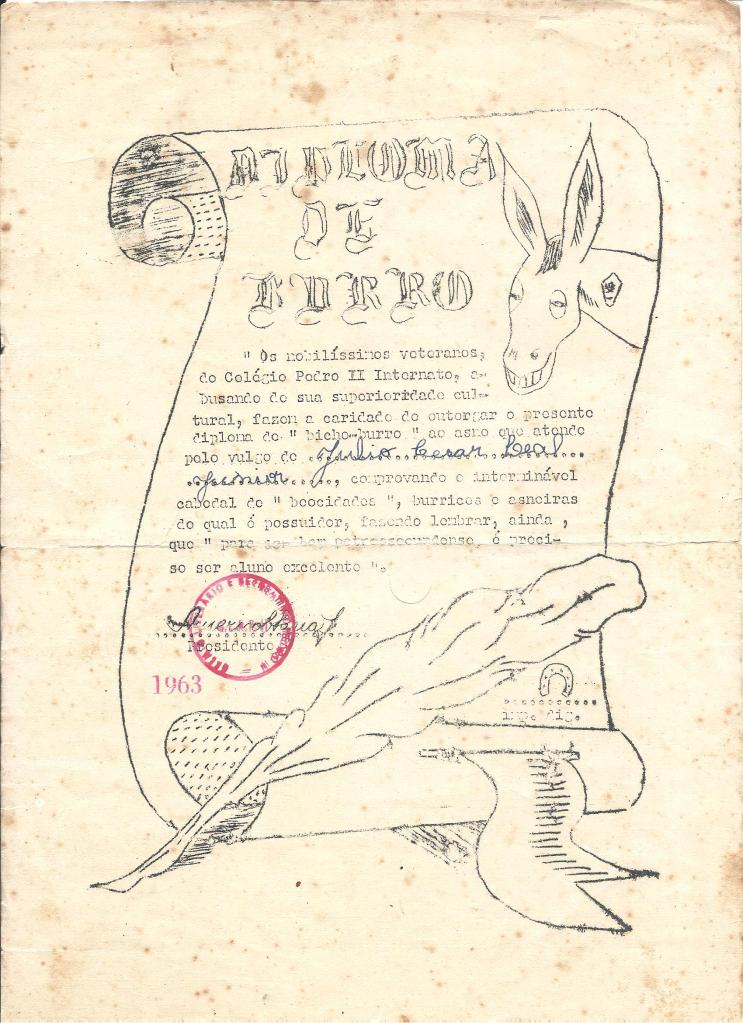 DIPLOMA
DE
BURRO
" Os nobilíssimos veteranos,
do Colégio Pedro II Internato, a-
busando de sua superioridade cul-
tural, fazem a caridade de outorgar o presente
diploma de " bicho-burro " ao asno que atende
pelo vulgo de Julio Cesar Leal
Junior, comprovando o interminável
cabedal de " beocidades ", burrices e asneiras
do qual é possuidor, fazendo lembrar, ainda ,
que " para ser bom petrossecundense, é preci-
so ser aluno excelente ".
Presidente
1963
imp. dig.